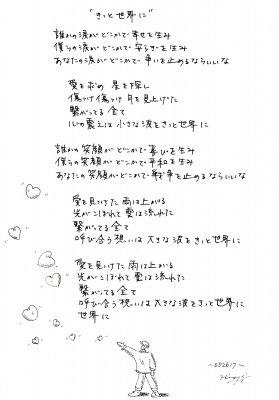 "きっと世界に"
誰かの涙がどこかで幸せを生み
僕らの涙がどこかで安らぎを生み
あなたの涙がどこかで争いを止めるならいいな
愛を求め 星を探し
傷つけ傷つけ 月を見上げた
繋がってる全て
心の震えは小さな波をきっと世界に
誰かの笑顔がどこかで喜びを生み
僕らの笑顔がどこかで平和を生み
あなたの笑顔がどこかで戦争を止めるならいいな
愛を見つけた 雨は上がる
光がこぼれて 雲は流れた
繋がってる全て
呼び合う想いは大きな波をきっと世界に
愛を見つけた 雨は上がる
光がこぼれて 雲は流れた
繋がってる全て
呼び合う想いは大きな波をきっと世界に
世界に
〜052617〜